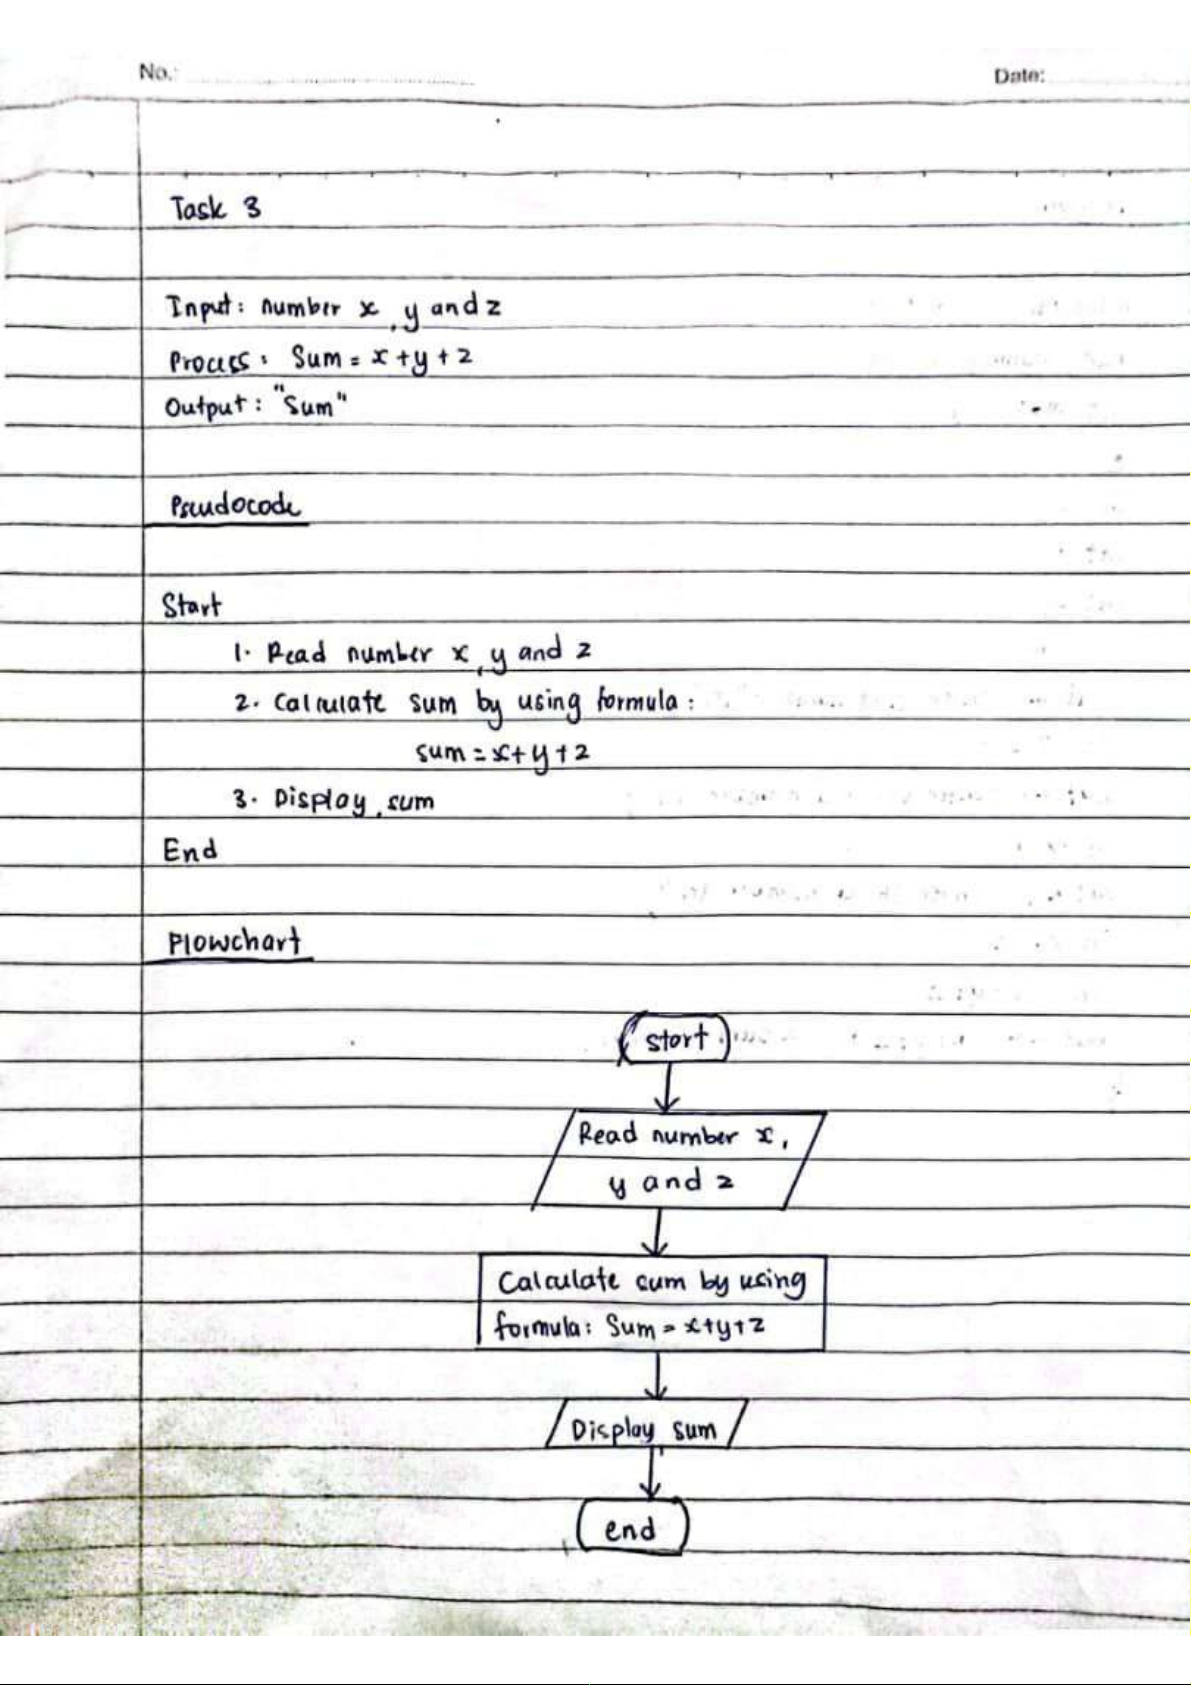 No.:
Date:
Task 3
Input: number x, y and z
Process: Sum = x + y + z
Output: "Sum"
Pseudocode
Start
1. Read number x, y and z
2. Calculate sum by using formula:
sum = x + y + z
3. Display sum
End
Flowchart
start
Read number x,
y and z
Calculate sum by using
formula: Sum = x+y+z
Display sum
end